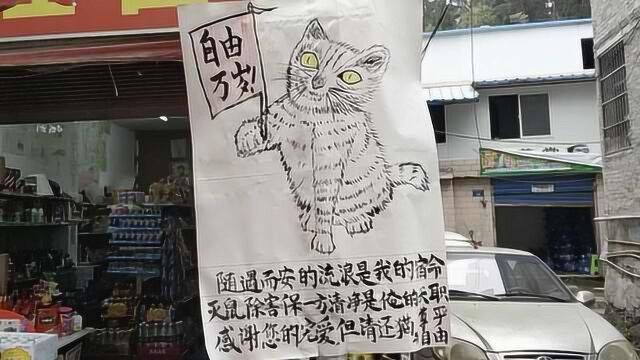 自由
万岁!
随遇而安的流浪是我的宿命
灭鼠除害保一方清净是他的天职
感谢您的宠爱但请还猫猫自由